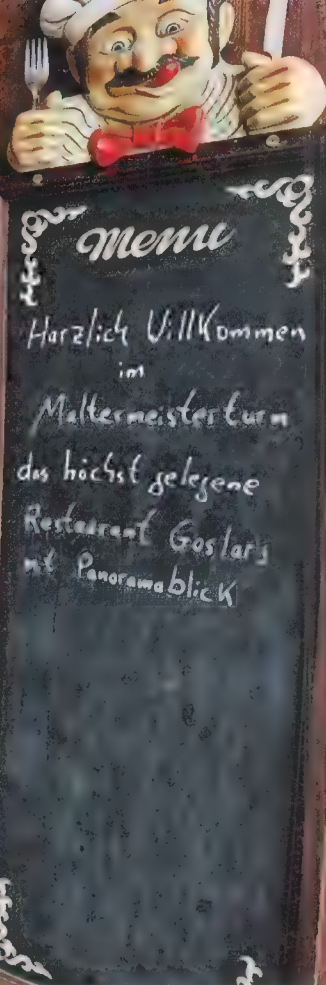 Menu
Herzlich Willkommen
im
Maltermeisterturm
das höchst gelegene
Restaurant Goslars
mit Panoramablick